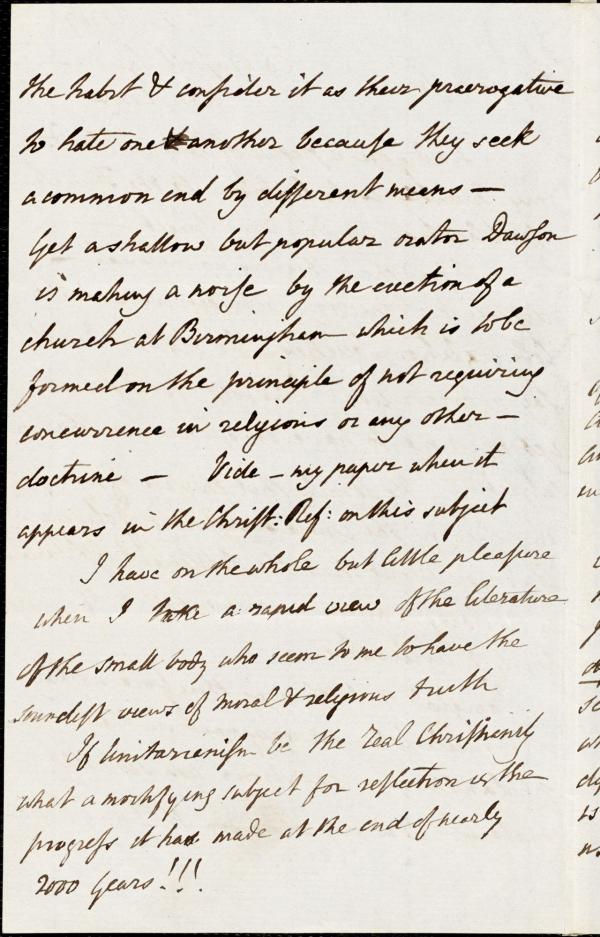 the habit & consider it as their praerogative
to hate one another because they seek
a common end by different means —
Yet a shallow but popular orator Dawson
is making a noise by the erection of a
church at Birmingham which is to be
formed on the principle of not requiring
concurrence in religious or any other —
doctrine — Vide – my paper when it
appears in the Christ: Ref: on this subject
I have on the whole but little pleasure
when I take a rapid view of the literature
of the small body who seem to me to have the
soundest views of moral & religious truth
If Unitarianism be the real Christianity
what a mortifying subject for reflection is the
progress it has made at the end of nearly
2000 years!!!